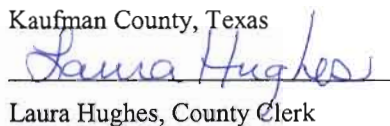 Kaufman County, Texas
Laura Hughes
Laura Hughes, County Clerk